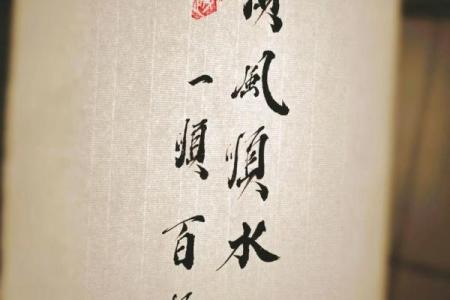 順風順水
一順百